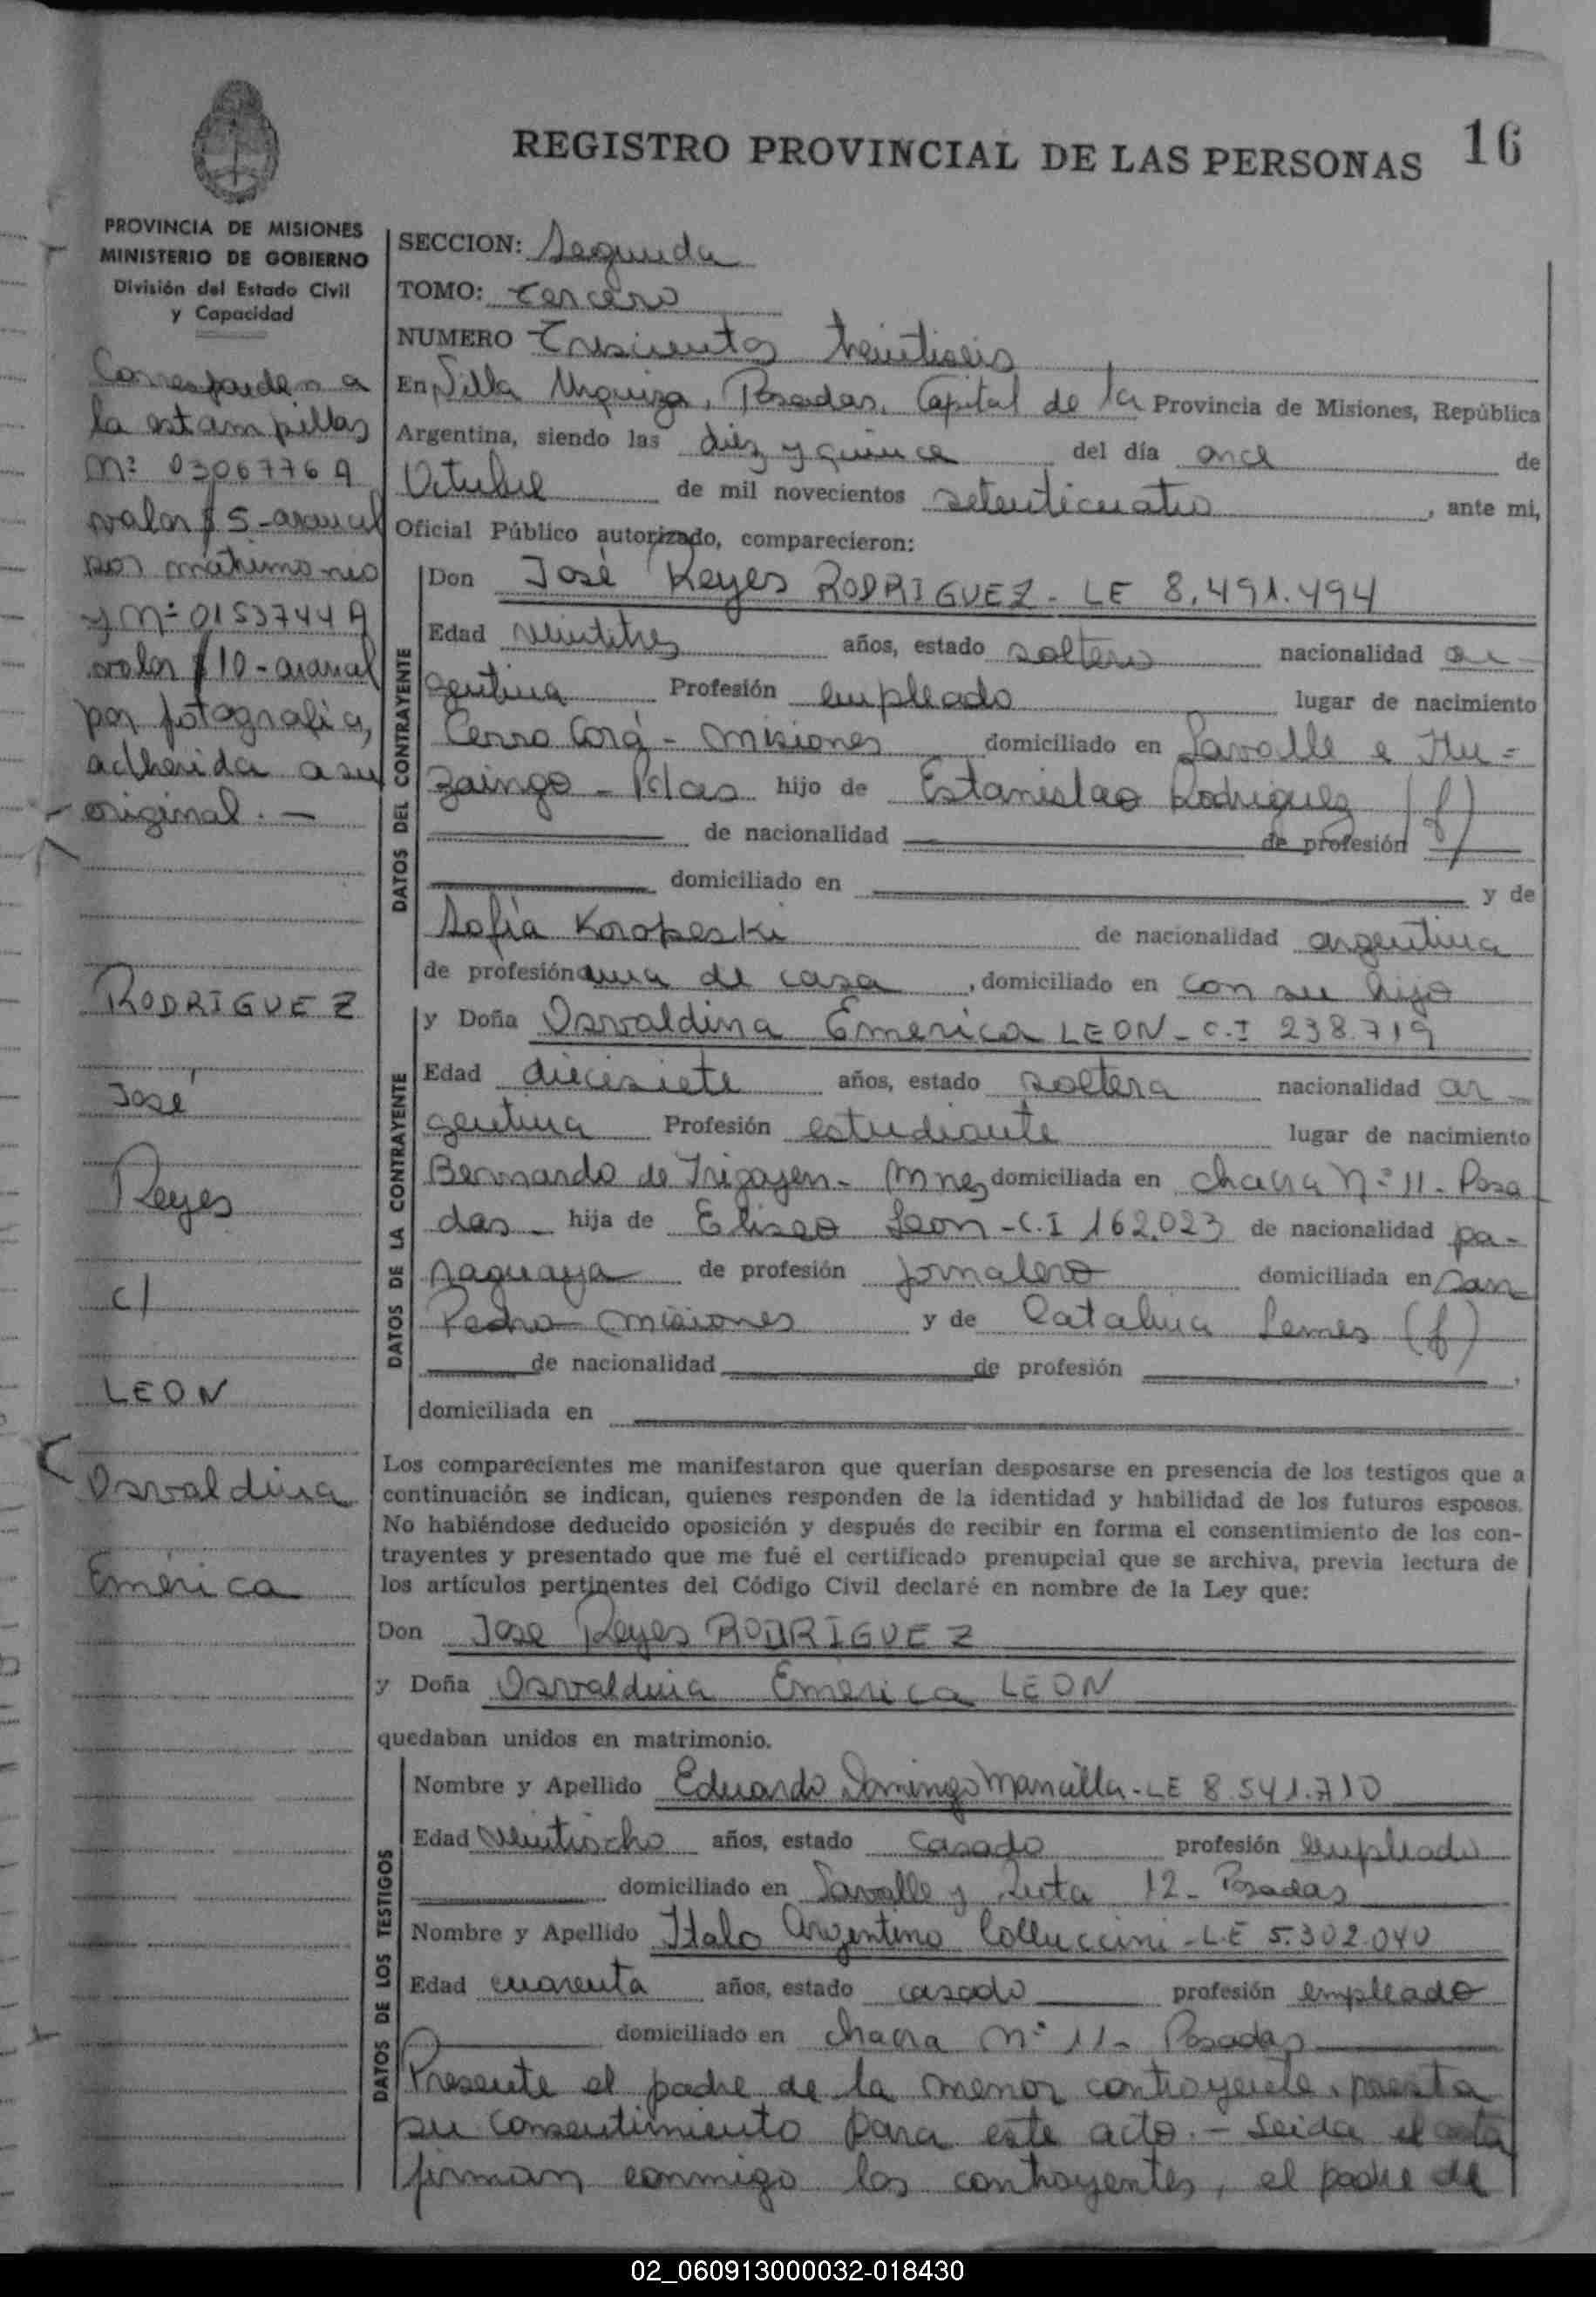 REGISTRO PROVINCIAL DE LAS PERSONAS 16
PROVINCIA DE MISIONES
MINISTERIO DE GOBIERNO
División del Estado Civil
y Capacidad
Corresponden a
la estampillas
Nº 0306776 A
valor $ 5 - arancel
por matrimonio
y Nº 0153744 A
valor $ 10 - arancel
por fotografia,
adherida a su
original. —
RODRIGUEZ
José
Reyes
c/
LEON
Osvaldina
Emérica
SECCION: Segunda
TOMO: tercero
NUMERO Trescientos treintiseis
En Villa Urquiza, Posadas, Capital de la Provincia de Misiones, República
Argentina, siendo las diez y quince del día once de
Octubre de mil novecientos setenticuatro, ante mi,
Oficial Público autorizado, comparecieron:
DATOS DEL CONTRAYENTE
Don José Reyes RODRIGUEZ - LE 8.491.494
Edad veintitres años, estado soltero nacionalidad ar-
gentina Profesión empleado lugar de nacimiento
Cerro Corá - Misiones domiciliado en Lavalle e Itu=
zaingo - Pdas hijo de Estanislao Rodriguez (f)
de nacionalidad de profesión
domiciliado en y de
Sofia Koropeski de nacionalidad argentina
de profesión ama de casa, domiciliado en con su hijo
DATOS DE LA CONTRAYENTE
y Doña Osvaldina Emerica LEON - C.I 238.719
Edad diecisiete años, estado soltera nacionalidad ar-
gentina Profesión estudiante lugar de nacimiento
Bernardo de Irigoyen - Mnes domiciliada en chacra Nº 11 - Posa
das - hija de Eliseo Leon - C.I 162.023 de nacionalidad pa-
raguaya de profesión jornalero domiciliada en San
Pedro - Misiones y de Catalina Lemes (f)
de nacionalidad de profesión ,
domiciliada en
Los comparecientes me manifestaron que querían desposarse en presencia de los testigos que a
continuación se indican, quienes responden de la identidad y habilidad de los futuros esposos.
No habiéndose deducido oposición y después de recibir en forma el consentimiento de los con-
trayentes y presentado que me fué el certificado prenupcial que se archiva, previa lectura de
los artículos pertinentes del Código Civil declaré en nombre de la Ley que:
Don Jose Reyes RODRIGUEZ
y Doña Osvaldina Emerica LEON
quedaban unidos en matrimonio.
DATOS DE LOS TESTIGOS
Nombre y Apellido Eduardo Domingo Mancilla - LE 8.541.710
Edad veintiocho años, estado casado profesión empleado
domiciliado en Lavalle y Ruta 12 - Posadas
Nombre y Apellido Italo Argentino Colluccini - LE 5.302.040
Edad cuarenta años, estado casado profesión empleado
domiciliado en chacra Nº 11 - Posadas
Presente el padre de la menor contrayente, presta
su consentimiento para este acto. - Leida el acta
firman conmigo los contrayentes, el padre de
02_060913000032-018430